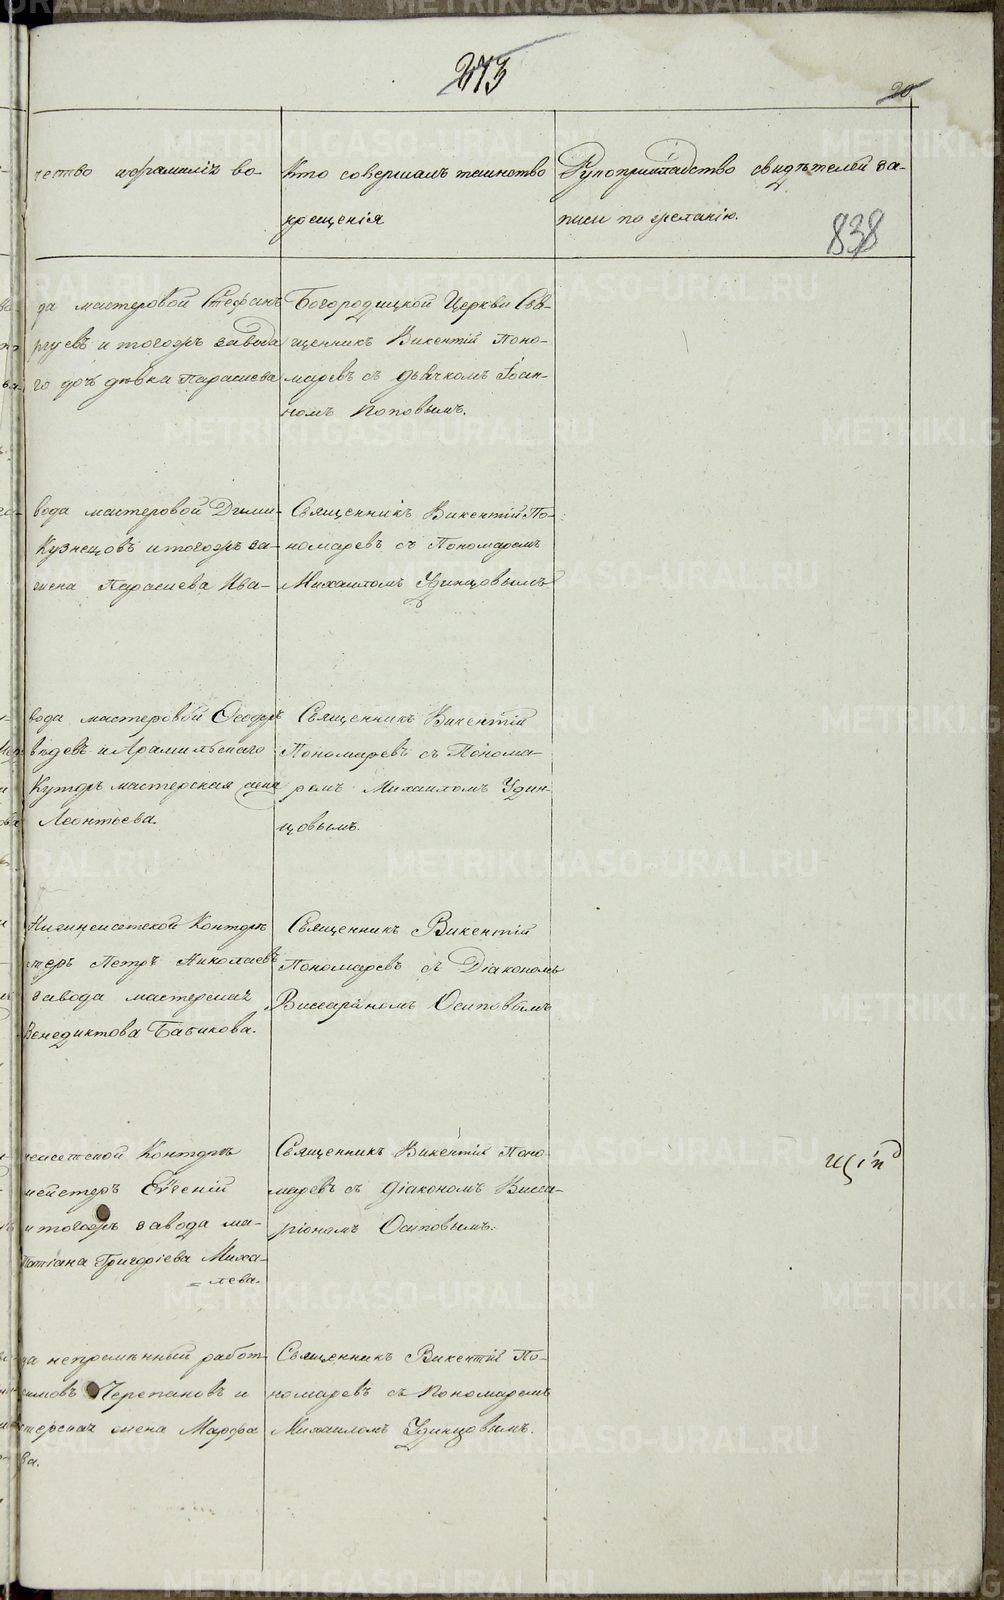 273
20
чество и фамилія во-
Кто совершалъ таинство
крещенія
Рукоприкладство свидѣтелей за-
писи по желанію.
838
да мастеровой Стефанъ
и тогожъ завода
го дочь дѣвка Параскева
Богородицкой Церкви Свя-
щенникъ Викентій Поно-
маревъ съ дьячкомъ Іоан-
номъ Поповымъ.
вода мастеровой Дими-
Кузнецовъ и тогожъ за-
жена Параскева Ива-
Священникъ Викентій По-
номаревъ съ Пономаремъ
Михаиломъ Удинцовымъ
вода мастеровой Ѳеодоръ
вѣдевъ и Арамильскаго
мастерская жена
Леонтьева.
Священникъ Викентій
Пономаревъ съ Понома-
ремъ Михаиломъ Удин-
цовымъ.
Нижнеисетской Конторы
Петръ Николаевъ
завода мастерская
Венедиктова Бабикова.
Священникъ Викентій
Пономаревъ съ Діакономъ
Виссаріономъ Осиповымъ
неисетской Конторы
мейстеръ Евгеній
и тогожъ завода ма-
Татіана Григоріева Миха-
= лева.
Священникъ Викентій Поно-
маревъ съ діакономъ Висса-
ріономъ Осиповымъ.
да непремѣнный работ-
симовъ Черепановъ и
стерская жена Марфа
ва.
Священникъ Викентій По-
номаревъ съ Пономаремъ
Михаиломъ Удинцовымъ.
METRIKI.GASO-URAL.RU